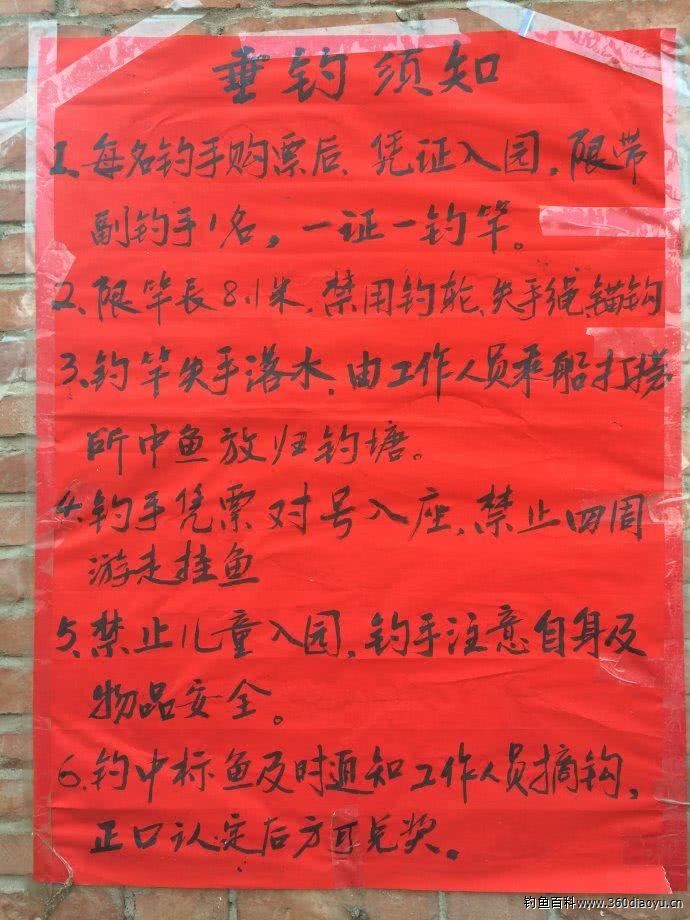 垂钓须知
1、每名钓手购票后、凭证入园，限带
副钓手1名，一证一钓竿。
2、限竿長8.1米，禁用钓轮、失手绳、锚钩
3、钓竿失手落水，由工作人员乘船打捞
所中鱼放归钓塘。
4、钓手凭票对号入座、禁止四周
游走挂鱼
5、禁止儿童入园，钓手注意自身及
物品安全。
6、钓中标鱼及时通知工作人员摘钩，
正口认定后方可兑奖。
钓鱼百科www.360diaoyu.cn